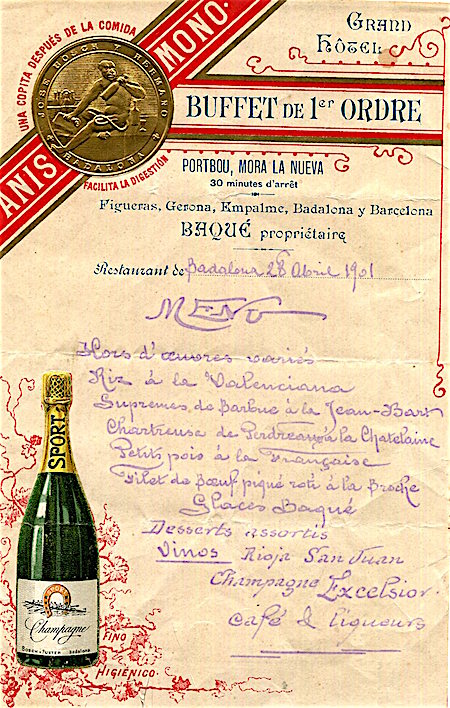 GRAND
HÔTEL
UNA COPITA DESPUÉS DE LA COMIDA
ANIS MONO.
JOSÉ BOSCH Y HERMANO
BADALONA
FACILITA LA DIGESTIÓN
BUFFET DE 1er ORDRE
PORTBOU, MORA LA NUEVA
30 minutes d'arrêt
Figueras, Gerona, Empalme, Badalona y Barcelona
BAQUÉ propriétaire
Restaurant de Badalona 28 Abril 1901
MENU
Hors d'œuvres variés
Riz à la Valenciana
Supremes de Barbue à la Jean-Bart
Chartreuse de Perdreaux à la Chatelaine
Petits pois à la Française
Filet de Bœuf piqué roti à la Broche
Glaces Baqué
Desserts assortis
Vinos Rioja San Juan
Champagne Excelsior.
Café & Liqueurs
SPORT
Champagne
BOSCH Y FUSTER BADALONA
FINO
HIGIÉNICO.